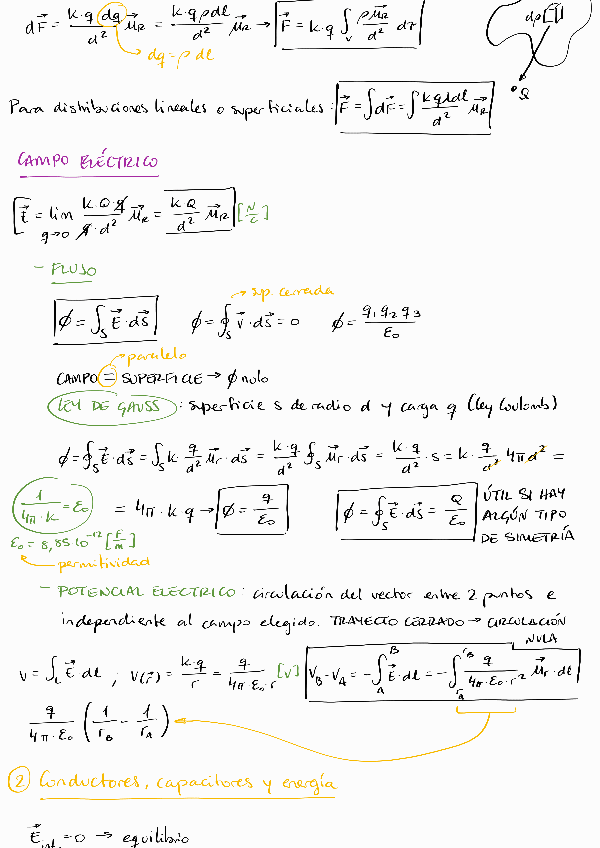 dF⃗ = k·q dq/d² μ⃗R = k·q ρdl/d² μ⃗R → F⃗ = k·q ∫v ρμ⃗R/d² dτ
dq = ρ dl
dρ
Q
Para distribuciones lineales o superficiales: F⃗ = ∫dF⃗ = ∫ k q λdl/d² μ⃗R
CAMPO ELÉCTRICO
E⃗ = lim q→0 k·Q·q/q·d² μ⃗R = k·Q/d² μ⃗R [N/C]
- FLUJO
sup. cerrada
ϕ = ∫S E⃗·dS⃗ ϕ = ∮S v⃗·dS⃗ = 0 ϕ = q₁q₂q₃/ε₀
paralelo
CAMPO = SUPERFICIE → ϕ nulo
LEY DE GAUSS: superficie s de radio d y carga q (ley Coulomb)
ϕ = ∮S E⃗·dS⃗ = ∫S k·q/d² μ⃗r·dS⃗ = k·q/d² ∮S μ⃗r·dS⃗ = k·q/d² · S = k·q/d² 4πd² =
1/4π·k = ε₀ = 4π·k q → ϕ = q/ε₀ ϕ = ∮S E⃗·dS⃗ = Q/ε₀ ÚTIL SI HAY
ALGÚN TIPO
DE SIMETRÍA
ε₀ = 8,85·10⁻¹² [F/m]
permitividad
- POTENCIAL ELECTRICO: circulación del vector entre 2 puntos e
independiente al campo elegido. TRAYECTO CERRADO → CIRCULACIÓN
NULA
V = ∫L E⃗ dl ; V(r⃗) = k·q/r = q/4π·ε₀·r [V] VB - VA = -∫A^B E⃗·dl = -∫rA^rB q/4π·ε₀·r² μ⃗r·dl
q/4π·ε₀ (1/rB - 1/rA)
2 Conductores, capacitores y energía
E⃗int = 0 → equilibrio